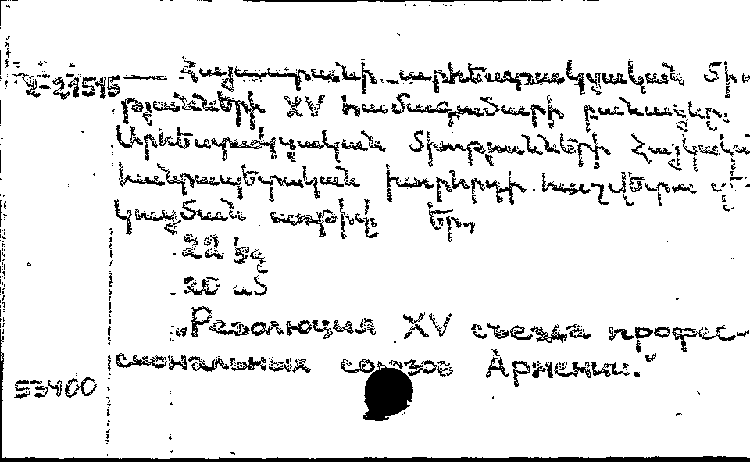 2-21515 — Հայաստանի արհեստակցական Միու
թյունների XV համագումարի բանաձևը.
Արհեստակցական Միությունների Հայկական
հանրապետական խորհրդի
կազման առթիվ Եր.,
22 էջ
20 սմ
„Резолюция XV съезда профес-
сиональных союзов Армении."
53400